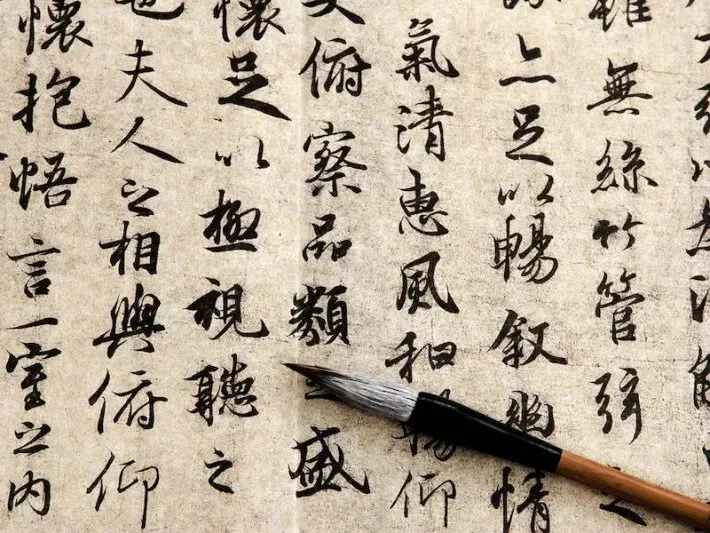 引以為流
雖無絲竹管弦之
亦足以暢敘幽情
氣清惠風和暢仰
大俯察品類之盛
懷足以極視聽之
也夫人之相與俯仰
懷抱悟言一室之內